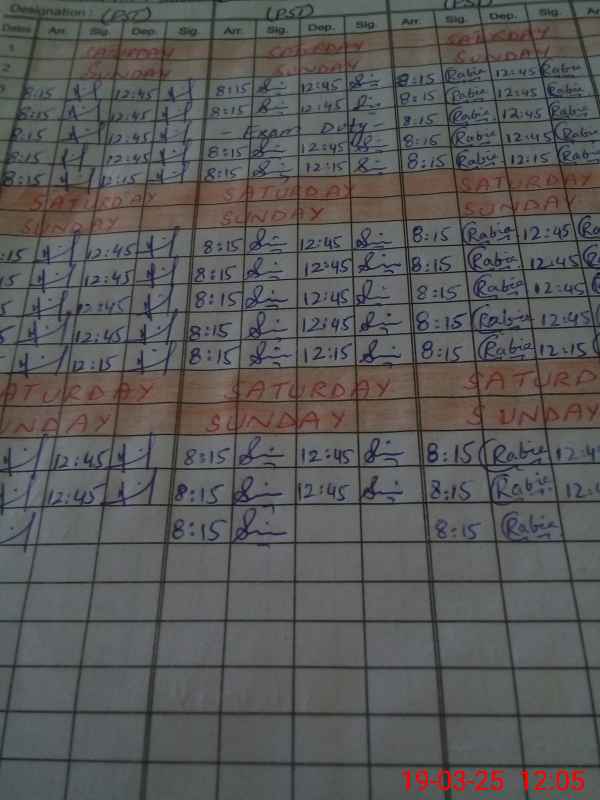 Designation: (PST) (PST) (PST)
Dates Arr. Sig. Dep. Sig. Arr. Sig. Dep. Sig. Arr. Sig. Dep. Sig. Ar
1 SATURDAY SATURDAY SATURDAY
2 SUNDAY SUNDAY SUNDAY
8:15 12:45 8:15 12:45 8:15 Rabia 12:45 Rabia
8:15 12:45 8:15 12:45 8:15 Rabia 12:45 Rabia
8:15 12:45 - Exam Duty - 8:15 Rabia 12:45 Rabia
8:15 12:45 8:15 12:45 8:15 Rabia 12:45 Rabia
8:15 12:15 8:15 12:15 8:15 Rabia 12:15 Rabia
SATURDAY SATURDAY SATURDAY
SUNDAY SUNDAY SUNDAY
15 12:45 8:15 12:45 8:15 Rabia 12:45
15 12:45 8:15 12:45 8:15 Rabia 12:45
5 12:45 8:15 12:45 8:15 Rabia 12:45
5 12:45 8:15 12:45 8:15 Rabia 12:45
12:15 8:15 12:15 8:15 Rabia 12:15
ATURDAY SATURDAY SATURD
UNDAY SUNDAY SUNDAY
12:45 8:15 12:45 8:15 Rabia 12:4
12:45 8:15 12:45 8:15 Rabia 12:
8:15 8:15 Rabia
19-03-25 12:05